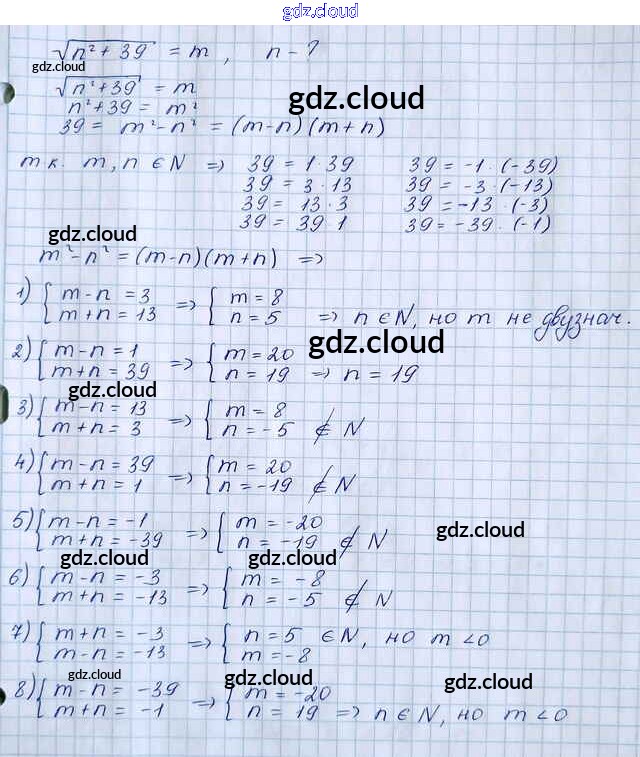 gdz.cloud
√(n² + 39) = m , n - ?
gdz.cloud
√(n² + 39) = m
n² + 39 = m²
gdz.cloud
39 = m² - n² = (m-n)(m+n)
т.к. m, n ∈ N ⇒ 39 = 1·39 39 = -1·(-39)
39 = 3·13 39 = -3·(-13)
39 = 13·3 39 = -13·(-3)
39 = 39·1 39 = -39·(-1)
gdz.cloud
m² - n² = (m-n)(m+n) ⇒
1) { m - n = 3 ⇒ { m = 8
m + n = 13 n = 5 ⇒ n ∈ N, но m не двузнач.
gdz.cloud
2) { m - n = 1 ⇒ { m = 20
m + n = 39 n = 19 ⇒ n = 19
gdz.cloud
3) { m - n = 13 ⇒ { m = 8
m + n = 3 n = -5 ∉ N
4) { m - n = 39 ⇒ { m = 20
m + n = 1 n = -19 ∉ N
5) { m - n = -1 ⇒ { m = -20
m + n = -39 n = -19 ∉ N
gdz.cloud
gdz.cloud gdz.cloud
6) { m - n = -3 ⇒ { m = -8
m + n = -13 n = -5 ∉ N
7) { m + n = -3 ⇒ { n = 5 ∈ N, но m < 0
m - n = -13 m = -8
gdz.cloud gdz.cloud
8) { m - n = -39 ⇒ { m = -20
m + n = -1 n = 19 ⇒ n ∈ N, но m < 0